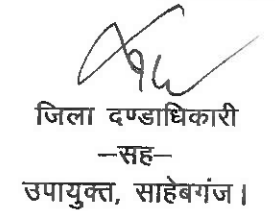 जिला दण्डाधिकारी
–सह–
उपायुक्त, साहेबगंज।